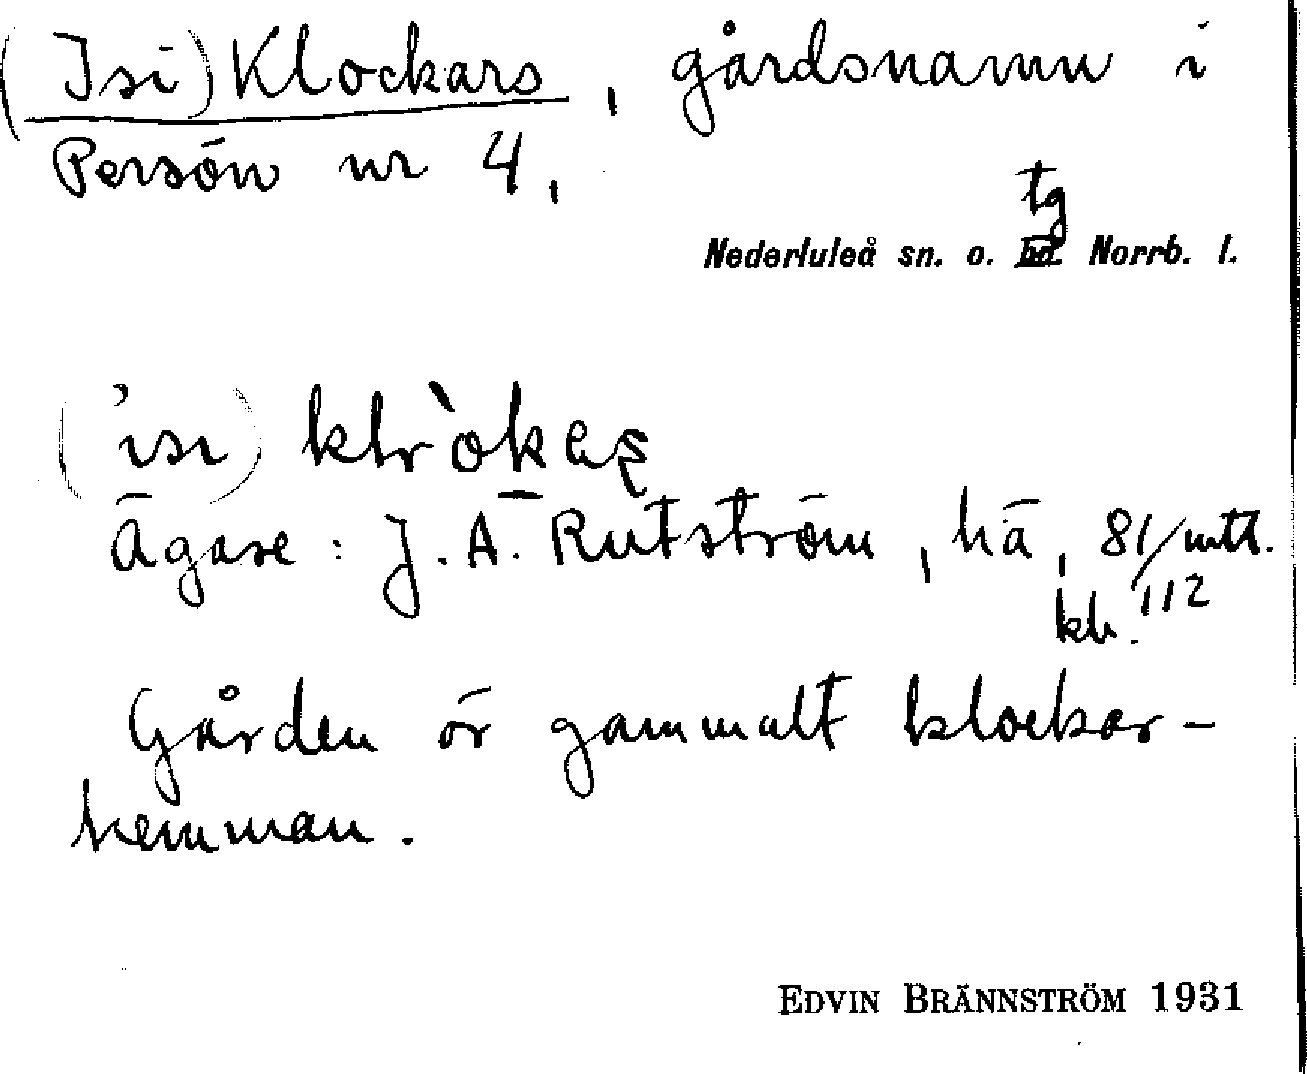 (Isi) Klockars, gårdsnamn i
Persön nr 4,
tg
Nederluleå sn. o. hd. Norrb. l.
Ägare: J. A. Rutström, hä, 81/112 mtl.
kh.
Gården är gammalt klockar-
hemman.
EDVIN BRÄNNSTRÖM 1931